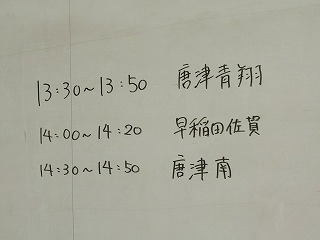 13:30~13:50 唐津青翔
14:00~14:20 早稲田佐賀
14:30~14:50 唐津南